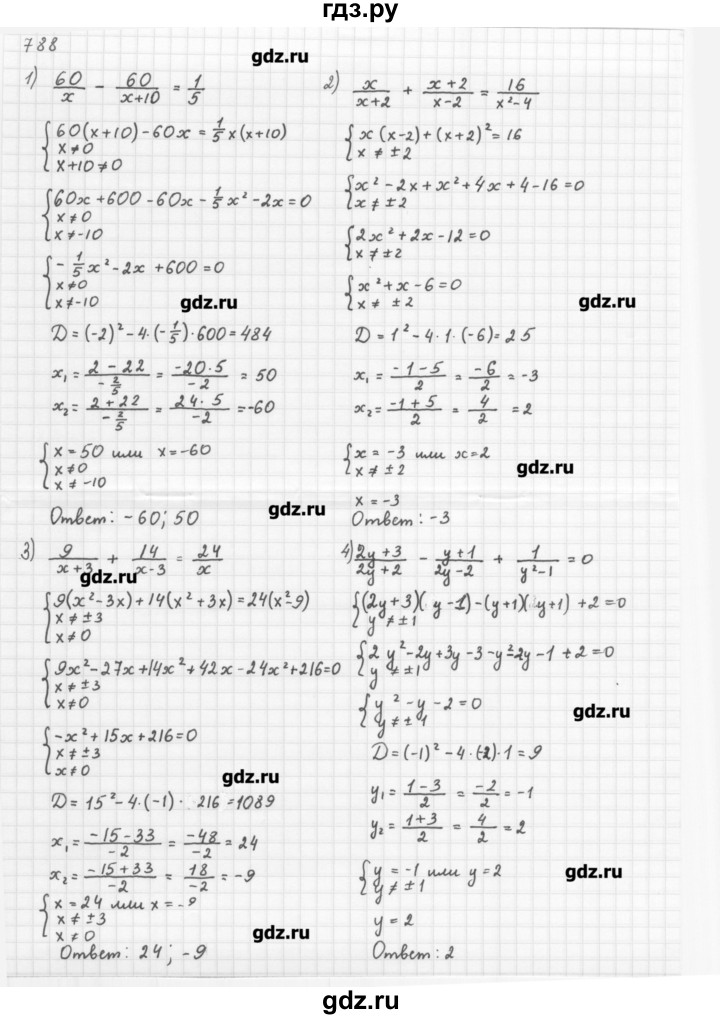 гдз.ру
788
gdz.ru
1) 60/x - 60/(x+10) = 1/5
{ 60(x+10) - 60x = 1/5 x(x+10)
x ≠ 0
x+10 ≠ 0
{ 60x + 600 - 60x - 1/5 x² - 2x = 0
x ≠ 0
x ≠ -10
{ - 1/5 x² - 2x + 600 = 0
x ≠ 0
x ≠ -10
gdz.ru
D = (-2)² - 4·(-1/5)·600 = 484
x₁ = (2 - 22)/(-2/5) = (-20·5)/(-2) = 50
x₂ = (2 + 22)/(-2/5) = (24·5)/(-2) = -60
{ x = 50 или x = -60
x ≠ 0
x ≠ -10
Ответ: -60; 50
gdz.ru
2) x/(x+2) + (x+2)/(x-2) = 16/(x²-4)
{ x(x-2) + (x+2)² = 16
x ≠ ±2
{ x² - 2x + x² + 4x + 4 - 16 = 0
x ≠ ±2
{ 2x² + 2x - 12 = 0
x ≠ ±2
{ x² + x - 6 = 0
x ≠ ±2
gdz.ru
D = 1² - 4·1·(-6) = 25
x₁ = (-1 - 5)/2 = -6/2 = -3
x₂ = (-1 + 5)/2 = 4/2 = 2
{ x = -3 или x = 2
x ≠ ±2
gdz.ru
x = -3
Ответ: -3
3) 9/(x+3) + 14/(x-3) = 24/x
gdz.ru
{ 9(x² - 3x) + 14(x² + 3x) = 24(x² - 9)
x ≠ ±3
x ≠ 0
{ 9x² - 27x + 14x² + 42x - 24x² + 216 = 0
x ≠ ±3
x ≠ 0
{ -x² + 15x + 216 = 0
x ≠ ±3
x ≠ 0
gdz.ru
D = 15² - 4·(-1)· 216 = 1089
x₁ = (-15 - 33)/(-2) = -48/(-2) = 24
x₂ = (-15 + 33)/(-2) = 18/(-2) = -9
{ x = 24 или x = -9
x ≠ ±3
x ≠ 0
gdz.ru
Ответ: 24; -9
4) (2y+3)/(2y+2) - (y+1)/(2y-2) + 1/(y²-1) = 0
{ (2y+3)(y-1) - (y+1)(y+1) + 2 = 0
y ≠ ±1
{ 2y² - 2y + 3y - 3 - y² - 2y - 1 + 2 = 0
y ≠ ±1
{ y² - y - 2 = 0
y ≠ ±1
gdz.ru
D = (-1)² - 4·(-2)·1 = 9
y₁ = (1 - 3)/2 = -2/2 = -1
y₂ = (1 + 3)/2 = 4/2 = 2
{ y = -1 или y = 2
y ≠ ±1
gdz.ru
y = 2
Ответ: 2
gdz.ru